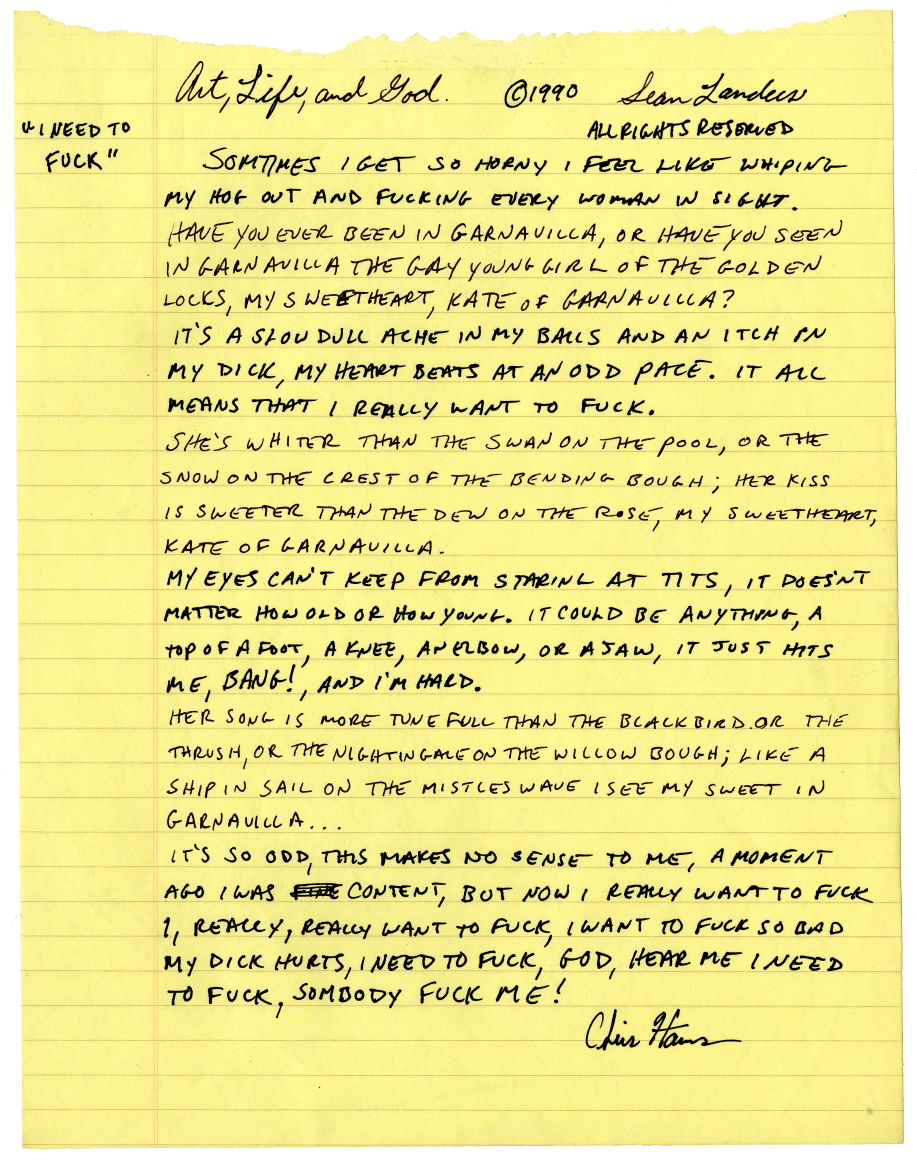 Art, Life, and God. ©1990 Sean Landers
ALL RIGHTS RESERVED
"I NEED TO
FUCK"
SOMTIMES I GET SO HORNY I FEEL LIKE WHIPING
MY HOG OUT AND FUCKING EVERY WOMAN IN SIGHT.
HAVE YOU EVER BEEN IN GARNAVILLA, OR HAVE YOU SEEN
IN GARNAVILLA THE GAY YOUNG GIRL OF THE GOLDEN
LOCKS, MY SWEETHEART, KATE OF GARNAVILLA?
IT'S A SLOW DULL ACHE IN MY BALLS AND AN ITCH IN
MY DICK, MY HEART BEATS AT AN ODD PACE. IT ALL
MEANS THAT I REALLY WANT TO FUCK.
SHE'S WHITER THAN THE SWAN ON THE POOL, OR THE
SNOW ON THE CREST OF THE BENDING BOUGH; HER KISS
IS SWEETER THAN THE DEW ON THE ROSE, MY SWEETHEART,
KATE OF GARNAVILLA.
MY EYES CAN'T KEEP FROM STARING AT TITS, IT DOESN'T
MATTER HOW OLD OR HOW YOUNG. IT COULD BE ANYTHING, A
TOP OF A FOOT, A KNEE, AN ELBOW, OR A JAW, IT JUST HITS
ME, BANG!, AND I'M HARD.
HER SONG IS MORE TUNEFULL THAN THE BLACKBIRD OR THE
THRUSH, OR THE NIGHTINGALE ON THE WILLOW BOUGH; LIKE A
SHIP IN SAIL ON THE MISTLES WAVE I SEE MY SWEET IN
GARNAVILLA...
IT'S SO ODD, THIS MAKES NO SENSE TO ME, A MOMENT
AGO I WAS CONTENT, BUT NOW I REALLY WANT TO FUCK
I, REALLY, REALLY WANT TO FUCK, I WANT TO FUCK SO BAD
MY DICK HURTS, I NEED TO FUCK, GOD, HEAR ME I NEED
TO FUCK, SOMBODY FUCK ME!
Chris Hams